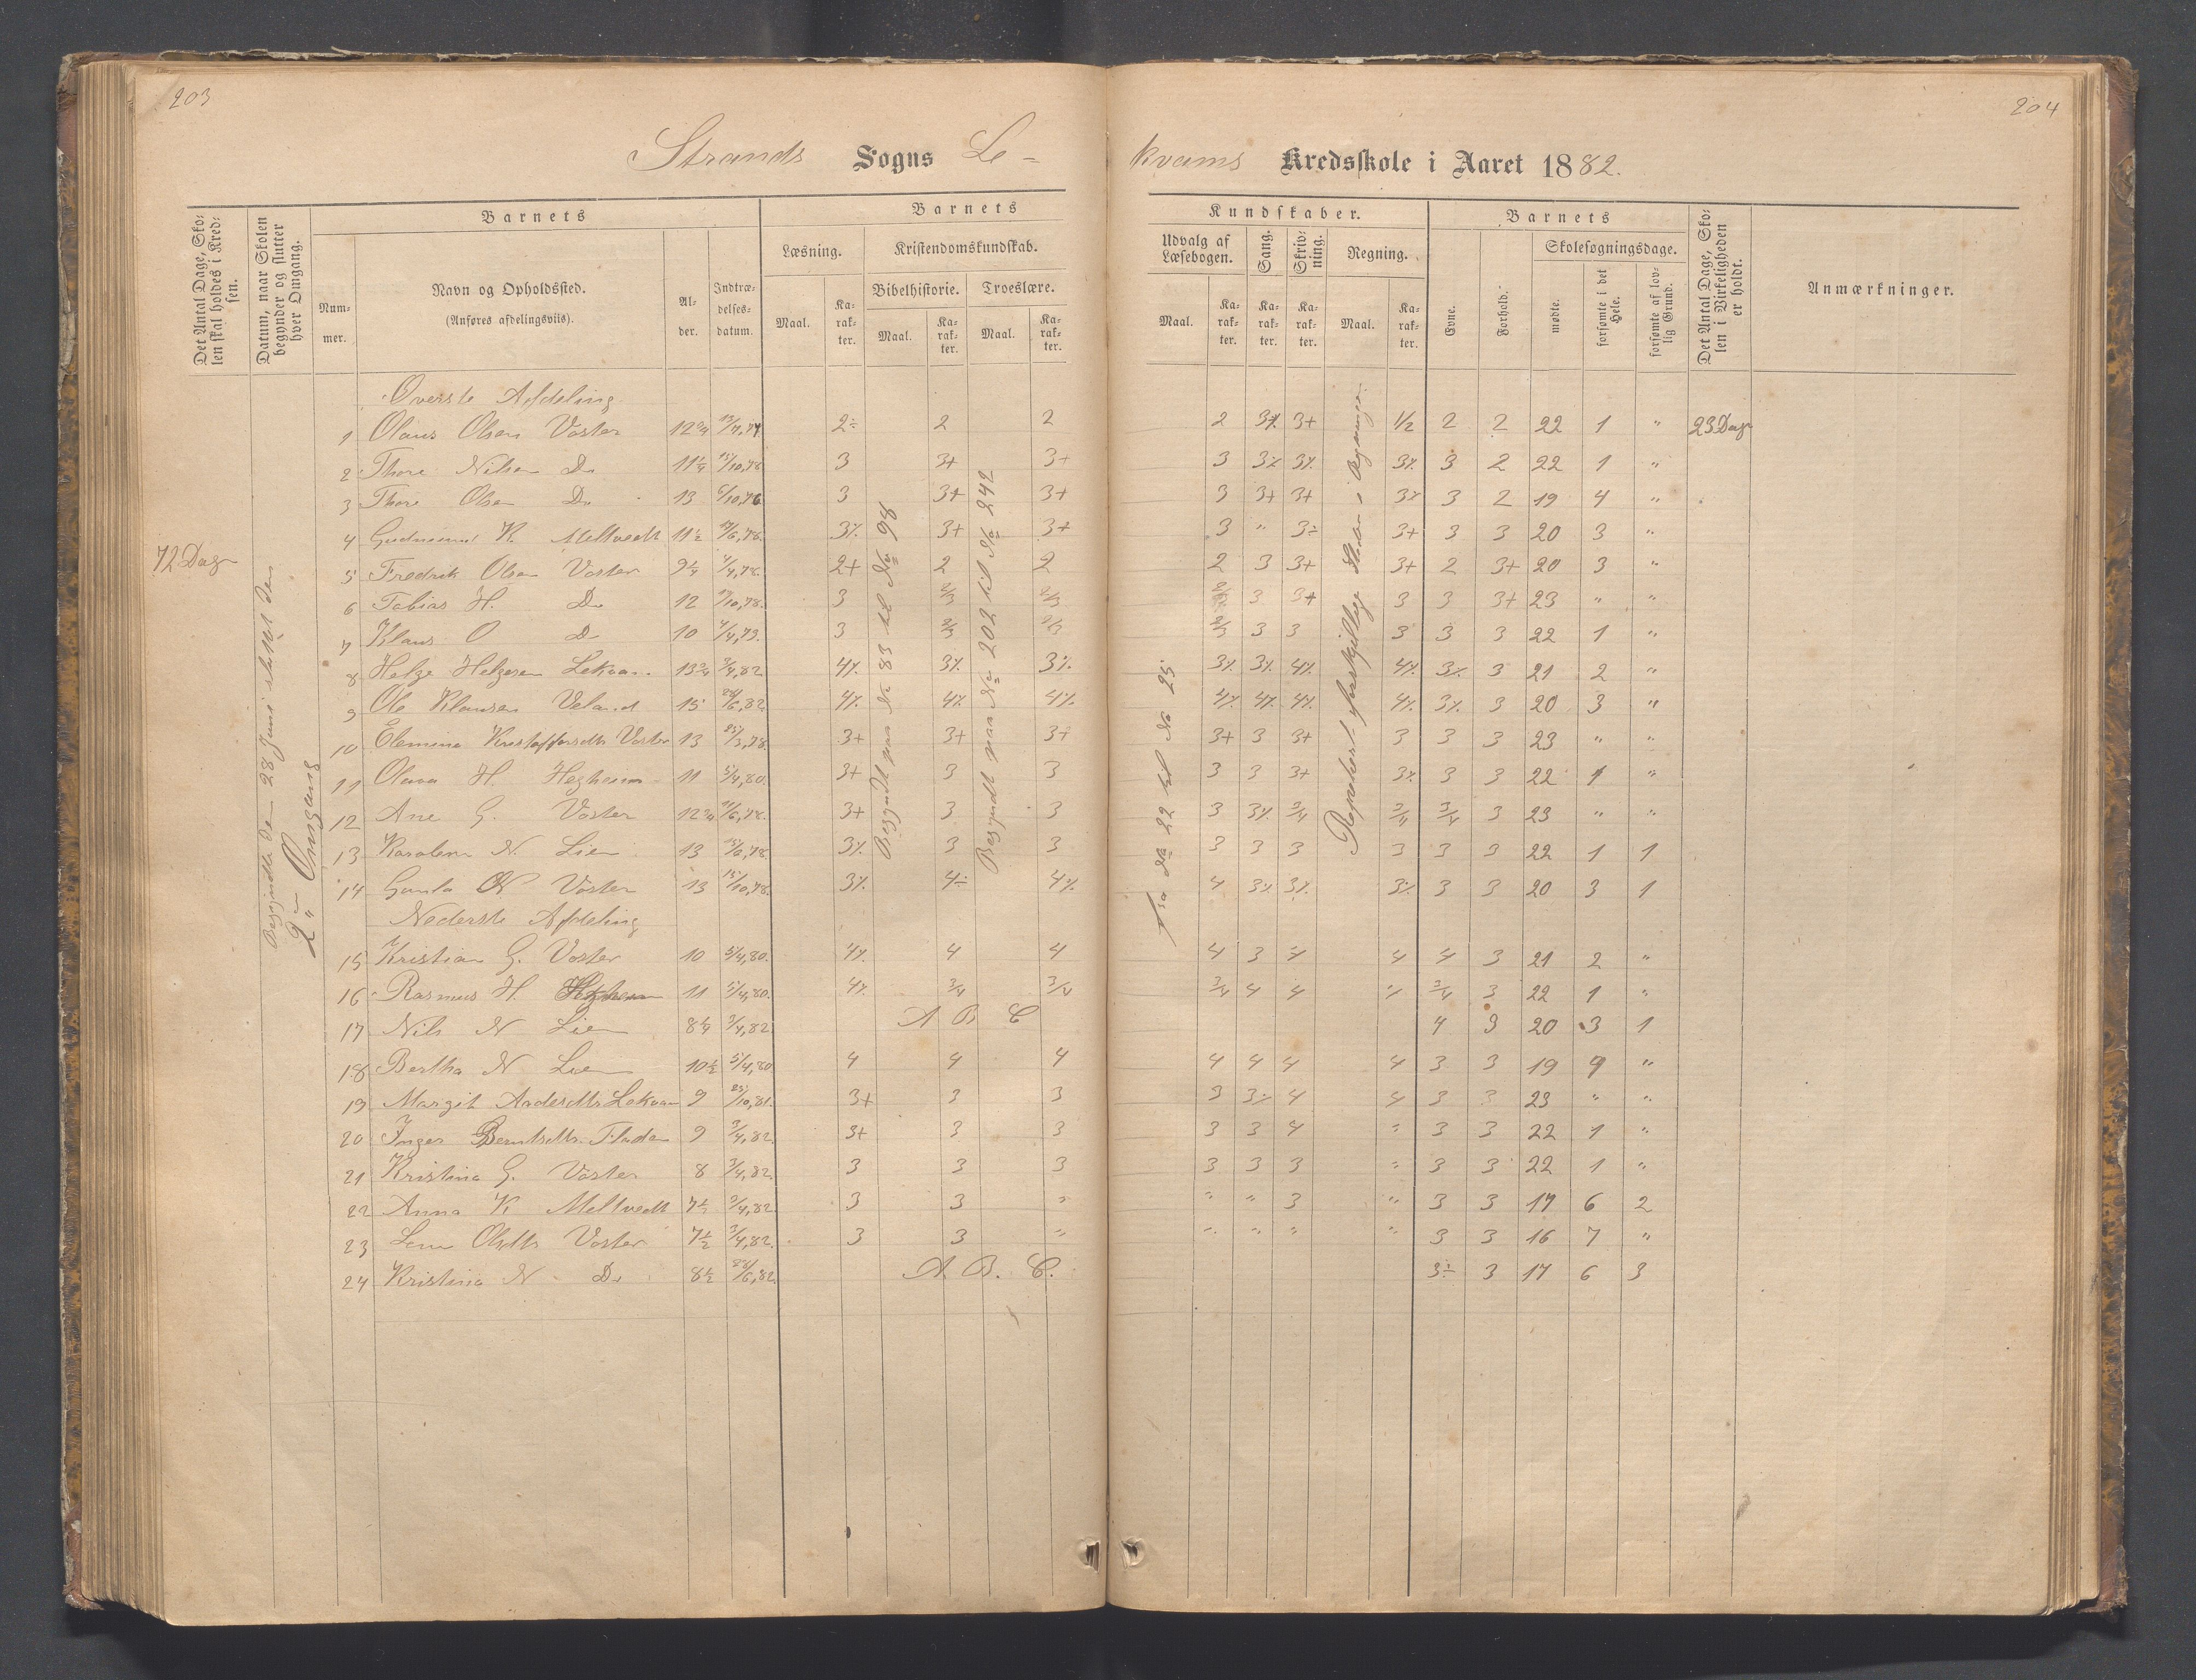 203
204
Strands Sogns Le-
kvams Kredsskole i Aaret 1882.
Det Antal Dage, Skolen skal holdes i Kredsen.
Datum, naar Skolen begynder og slutter hver Omgang.
Barnets
Nummer.
Navn og Opholdssted.
(Anføres afdelingsviis).
Alder.
Indtrædelsesdatum.
Barnets
Læsning.
Maal.
Karakter.
Kristendomskundskab.
Bibelhistorie.
Maal.
Karakter.
Troeslære.
Maal.
Karakter.
Kundskaber.
Udvalg af Læsebogen.
Maal.
Karakter.
Sang.
Karakter.
Skrivning.
Karakter.
Regning.
Maal.
Karakter.
Barnets
Evne.
Forhold.
Skolesøgningsdage.
mødte.
forsømte i det Hele.
forsømte af lovlig Grund.
Det Antal Dage, Skolen i Virkeligheden er holdt.
Anmærkninger.
72 Dage
2den Omgang
Begyndt paa No 83 til No 98
Begyndt paa No 202 til No 242
Fra No 22 til No 25
Øverste Afdeling
1 Olaus Olsen Voster 12 3/4 2÷ 2 2 2 3+ 1/2 2 2 22 1 " 23 Dage
2 Thore Nilsen Do 11 1/4 15/10,78 3 3+ 3+ 3 3 2 22 1 "
3 Thore Olsen Do 13 6/10,76 3 3+ 3+ 3 3+ 3+ 3 2 19 4 "
4 K. Meltvedt 11 1/2 3+ 3+ 3 " 3÷ 3+ 3 3 20 3 "
5 Fredrik Olsen Voster 9 1/4 4/4,78. 2+ 2 2 2 3 3+ 3+ 2 3+ 20 3 "
6 Tobias H. Do 12 3 2/3 2/3 2/3 3 3+ 3 3 3+ 23 " "
7 Klaus O Do 10 3 2/3 2/3 2/3 3 3 3 3 3 22 1 "
8 Helge Helgesen Lekvam 13 3/4 3/4,82 3 21 2 "
9 Ole Klausen Veland 15 28/6,82 3 20 3 "
10 Voster 13 25/3,78. 3+ 3+ 3+ 3+ 3 3+ 3 3 3 23 " "
11 Olava H. Hegheim 11 5/4,80. 3+ 3 3 3 3 3+ 3 3 22 1 "
12 Ane G. Voster 12 3/4 3+ 3 3 3 3/4 3/4 3/4 3 23 " "
13 Karolene N. Lien 13 3 3 3 3 3 3 3 3 22 1 1
14 Gunla N Voster 13 15/10,78. 4÷ 4 3 3 20 3 1
Nederste Afdeling
15 Kristian G. Voster 10 5/4,80. 4 4 4 3 4 4 4 3 21 2 "
16 Rasmus H. Hegheim 11 5/4,80. 3/4 3/4 3/4 4 4 3/4 3 22 1 "
17 Nils N Lien 8 1/4 3/4,82 A B C 4 3 20 3 1
18 Bertha N Lien 10 1/2 5/4,80 4 4 4 4 4 4 4 3 3 19 4 "
19 Margit Lekvam 9 25/10,81. 3+ 3 3 3 4 4 3 3 23 " "
20 Inger 9 3/4,82. 3+ 3 3 3 3 4 " 3 3 22 1 "
21 Kristina G. Voster 8 3/4,82. 3 3 3 3 3 3 " 3 3 22 1 "
22 Anna K Meltvedt 7 1/2 3/4,82. 3 3 " " " 3 " 3 3 17 6 2
23 Voster 7 1/2 3/4,82. 3 3 " " " " " 3 3 16 7 "
24 Kristina N. Do 8 1/2 28/6,82. A. B. C. 3÷ 3 17 6 3